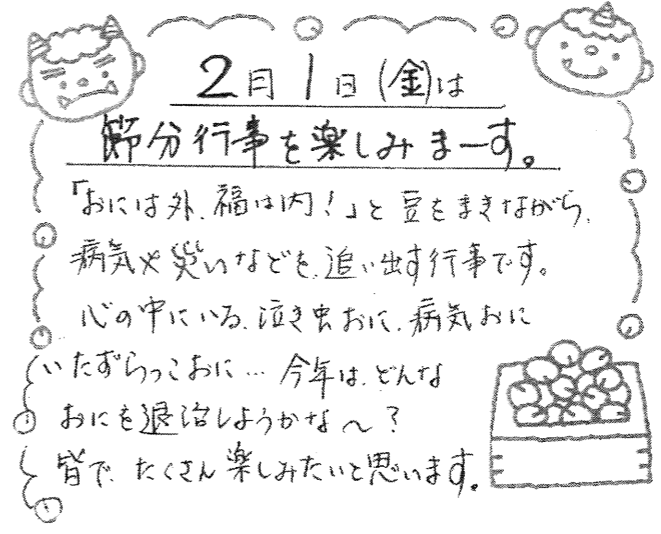 2月1日(金)は
節分行事を楽しみまーす。
「おには外、福は内!」と豆をまきながら、
病気や災いなどを、追い出す行事です。
心の中にいる、泣き虫おに、病気おに
いたずらっこおに… 今年は、どんな
おにを退治しようかな〜?
皆で、たくさん楽しみたいと思います。